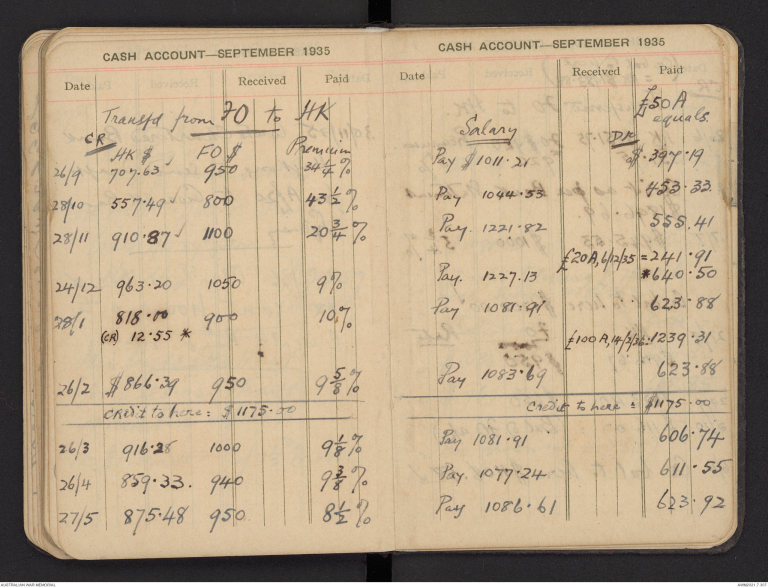 CASH ACCOUNT—SEPTEMBER 1935
Date Received Paid
Transf'd from FO to HK
CR
HK $ FO $ Premium
26/9 707.63 ✓ 950 34 1/4 %
28/10 557.49 ✓ 800 43 1/2 %
28/11 910.87 ✓ 1100 20 3/4 %
24/12 963.20 1050 9%
28/1 818.00 900 10%
(CR) 12.55 *
26/2 $866.39 950 9 5/8 %
Credit to here: $1175.00
26/3 916.28 1000 9 1/8 %
26/4 859.33. 940 9 3/8 %
27/5 875.48 950. 8 1/2 %
CASH ACCOUNT—SEPTEMBER 1935
Date Received Paid
£50 A
equals
Salary DR
Pay $1011.21 $.397.19
Pay 1044.53 453.33.
Pay. 1221.82 555.41
£20A, 6/12/35 = 241.91
Pay. 1227.13 *640.50
Pay 1081.91 623.88
£100A, 14/2/36: 1239.31
Pay 1083.69 623.88
Credit to here: $1175.00
Pay 1081.91 606.74
Pay. 1077.24 611.55
Pay 1086.61 623.92
AUSTRALIAN WAR MEMORIAL